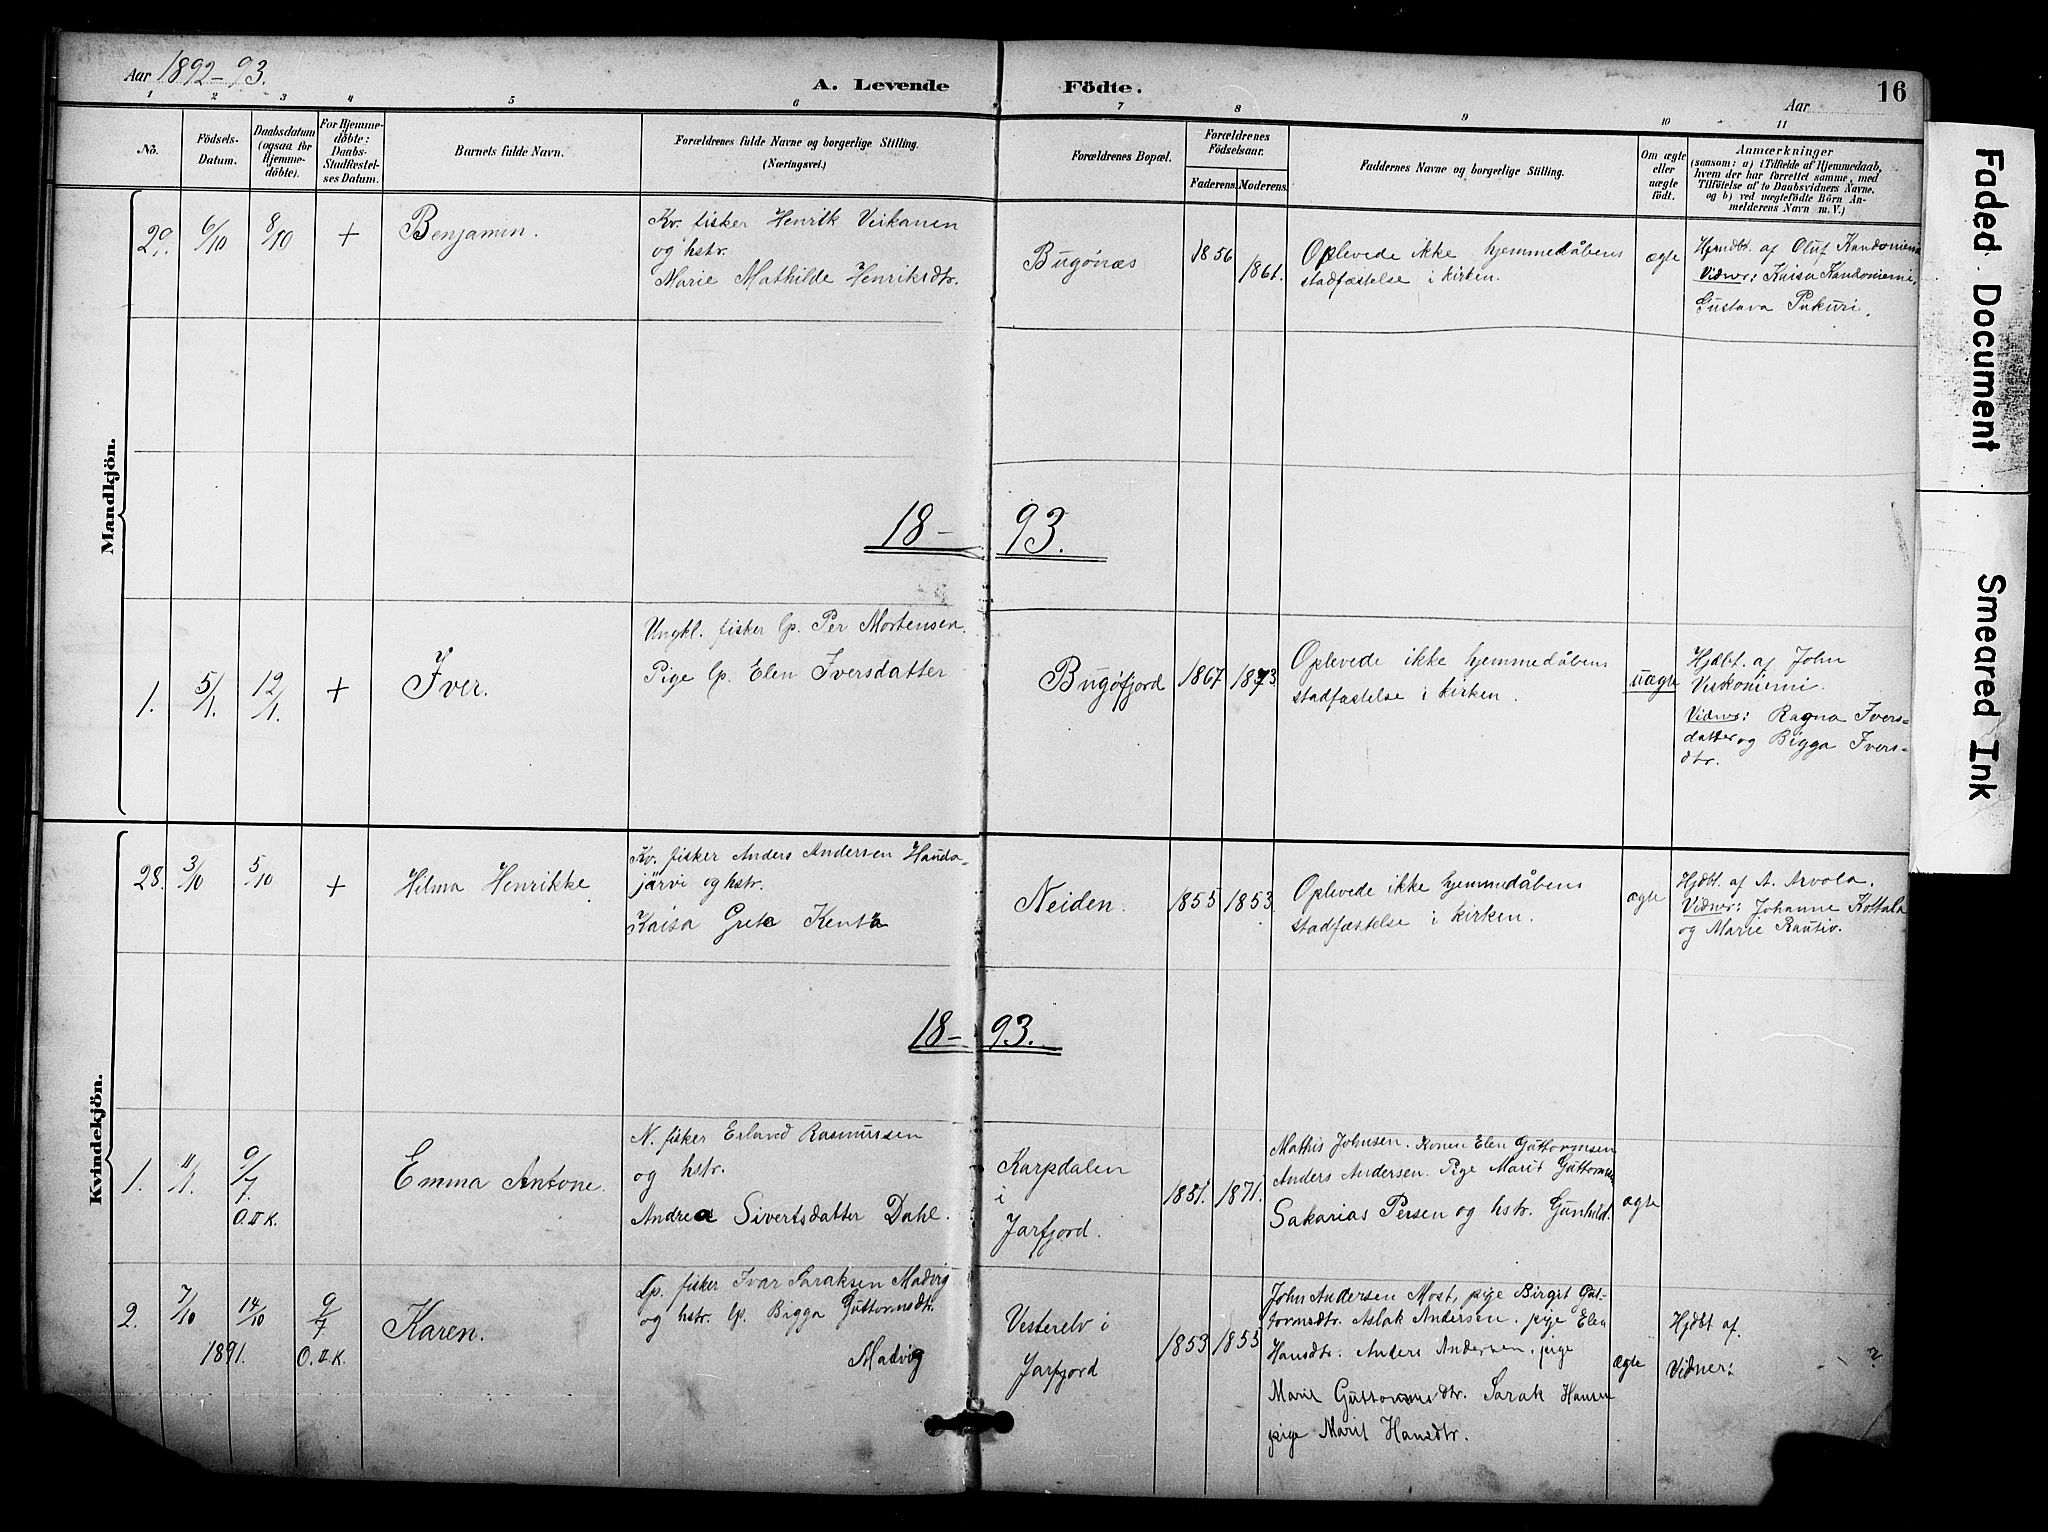 Aar 1892-93.
A. Levende Födte.
Aar
16
1 2 3 4 5 6 7 8 9 10 11
No.
Födsels-
Datum.
Daabsdatum
(ogsaa for
Hjemme-
döbte).
For Hjemme-
döbte:
Daabs-
Stadfæstel-
ses Datum.
Barnets fulde Navn.
Forældrenes fulde Navne og borgerlige Stilling.
(Næringsvei.)
Forældrenes Bopæl.
Forældrenes
Födselsaar.
Faderens. Moderens.
Faddernes Navne og borgerlige Stilling.
Om ægte
eller
uægte
födt.
Anmærkninger
(saasom: a) i Tilfælde af Hjemmedaab,
hvem der har forrettet samme, med
Tilföielse af to Daabsvidners Navne,
og b) ved uægtefödte Börn An-
melderens Navn m. V.)
Mandkjön.
29. 6/10 8/10 + Benjamin.
Kv. fisker Henrik Veikanen
og hstr.
Marie Mathilde Henriksdtr.
Bugönæs
1856
1861.
Oplevede ikke hjemmedåbens
stadfæstelse i kirken.
ægte
Hjmdbt. af Oluf
Vidner: Kaisa
Gustava Pukuri.
18-93.
1. 5/1. 12/1. + Iver.
Ungkl. fisker lp. Per Mortensen.
Pige lp. Elen Iversdatter
Bugöfjord
1867
1873.
Oplevede ikke hjemmedåbens
stadfæstelse i kirken.
uægte
Hjdbt. af John
Viskoniemi.
Vidner: Ragna Ivers-
datter og Bigga Ivers-
dtr.
Kvindekjön.
28. 3/10 5/10 + Hilma Henrikke
Kv. fisker Anders Andersen Hauda-
järvi og hstr.
Kaisa Greta Kenta
Neiden.
1855
1853.
Oplevede ikke hjemmedåbens
stadfæstelse i kirken.
ægte
Hjdbt. af A. Arvola.
Vidner: Johanne Kottala
og Marie Rautio.
18-93.
1. 11/1. 9/7. O.II K. Emma Antone.
N. fisker Erland Rasmussen
og hstr.
Andrea Sivertsdatter Dahl.
Karpdalen
i
Jarfjord.
1851.
1871.
Mathis Johnsen. Konen Elen Guttormsen
Anders Andersen. Pige Marit
Sakarias Persen og hstr. Gunhild.
ægte
2. 7/10 14/10 1891. 9/7 O.II K. Karen.
Lp. fisker Ivar Saraksen Madvig
og hstr. lp. Bigga Guttormsdtr.
Madvig
Vesterelv i
Jarfjord
1853
1853
John Andersen Most, pige Birgit Gut-
tormsdtr. Aslak Andersen. pige Elen
Hansdtr. Anders Andersen. pige
Marit Guttormsdtr. Sarak Hansen
pige Marit Hansdtr.
ægte
Hjdbt af
Vidner: ?
Faded Document
Smeared Ink